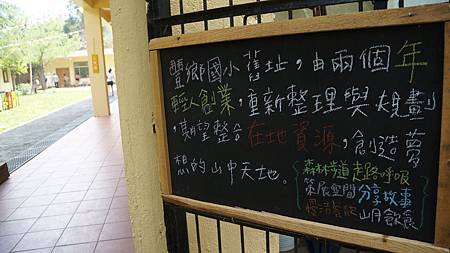 豐鄉國小舊址，由兩個年
輕人創業，重新整理與規劃
，期望整合在地資源，創造夢
想的山中天地。
森林步道 走路呼吸
策展空間 分享故事
慢活餐飲 山月飲食